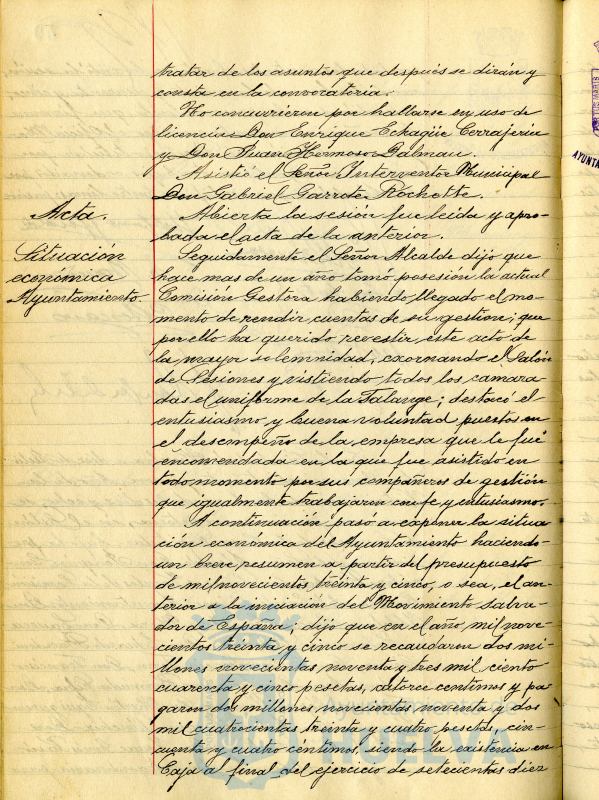 tratar de los asuntos que después se dirán y
consta en la convocatoria.
No concurrieron por hallarse en uso de
licencias Don Enrique Echagüe Cerrajería
y Don Juan Hermoso Dalmau.
Asistió el Señor Interventor Municipal
Don Gabriel Garrote Rochette.
Acta.
Abierta la sesión fue leida y apro-
bada el acta de la anterior.
Situación
económica
Ayuntamiento.
Seguidamente el Señor Alcalde dijo que
hace mas de un año tomó posesión la actual
Comisión Gestora habiendo llegado el mo-
mento de rendir cuentas de su gestion; que
por ello ha querido revestir este acto de
la mayor solemnidad, exornando el Salón
de Sesiones y vistiendo todos los camara-
das el uniforme de la Falange; destacó el
entusiasmo y buena voluntad puestos en
el desempeño de la empresa que le fué
encomendada en la que fue asistido en
todo momento por sus compañeros de gestión
que igualmente trabajaron con fe y entusiasmo.
A continuación pasó a exponer la situa-
ción económica del Ayuntamiento haciendo
un breve resumen a partir del presupuesto
de mil novecientos treinta y cinco, o sea, el an-
terior a la iniciación del Movimiento salva-
dor de España; dijo que en el año mil nove-
cientos treinta y cinco se recaudaron dos mi-
llones novecientas noventa y tres mil ciento
cuarenta y cinco pesetas, catorce centimos y pa-
garon dos millones novecientas noventa y dos
mil cuatrocientas treinta y cuatro pesetas, cin-
cuenta y cuatro centimos, siendo la existencia en
Caja al final del ejercicio de setecientas diez
HUELVA